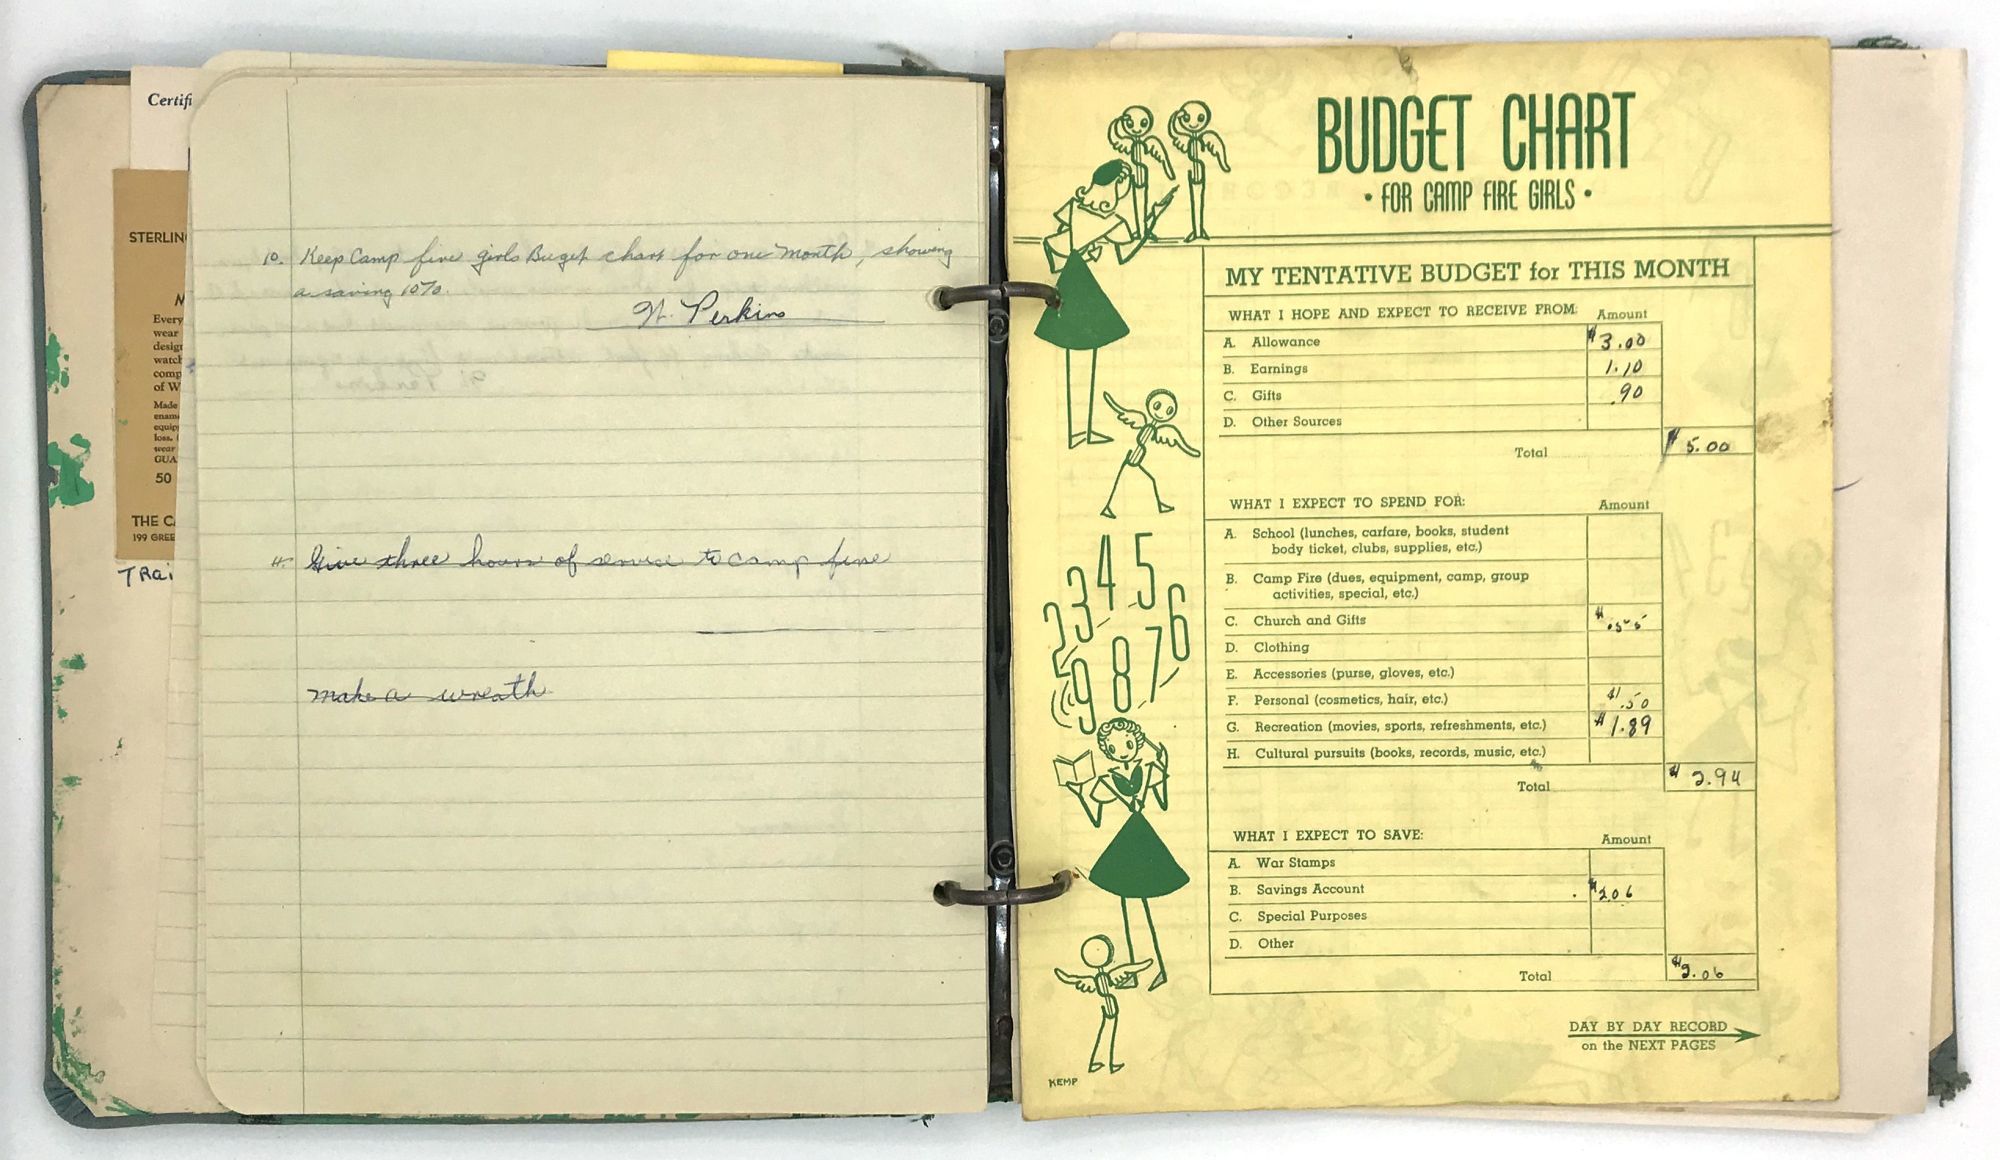 Certifi
STERLIN
M
Every
wear
design
watch
comp
of W
Made
enam
equip
loss.
wear
GUA
50
THE C
199 GREE
TRai
10. Keep Camp fire girls Buget chart for one month, showing
a saving 10%.
Perkins
11. Give three hours of service to camp fire
make a wreath
BUDGET CHART
• FOR CAMP FIRE GIRLS •
MY TENTATIVE BUDGET for THIS MONTH
WHAT I HOPE AND EXPECT TO RECEIVE FROM: Amount
A. Allowance $3.00
B. Earnings 1.10
C. Gifts .90
D. Other Sources
Total $5.00
WHAT I EXPECT TO SPEND FOR: Amount
A. School (lunches, carfare, books, student
body ticket, clubs, supplies, etc.)
B. Camp Fire (dues, equipment, camp, group
activities, special, etc.)
C. Church and Gifts $.55
D. Clothing
E. Accessories (purse, gloves, etc.)
F. Personal (cosmetics, hair, etc.) $.50
G. Recreation (movies, sports, refreshments, etc.) $1.89
H. Cultural pursuits (books, records, music, etc.)
Total $2.94
WHAT I EXPECT TO SAVE: Amount
A. War Stamps
B. Savings Account $2.06
C. Special Purposes
D. Other
Total $2.06
DAY BY DAY RECORD
on the NEXT PAGES
2 3 4 5 6 7 8 9
KEMP